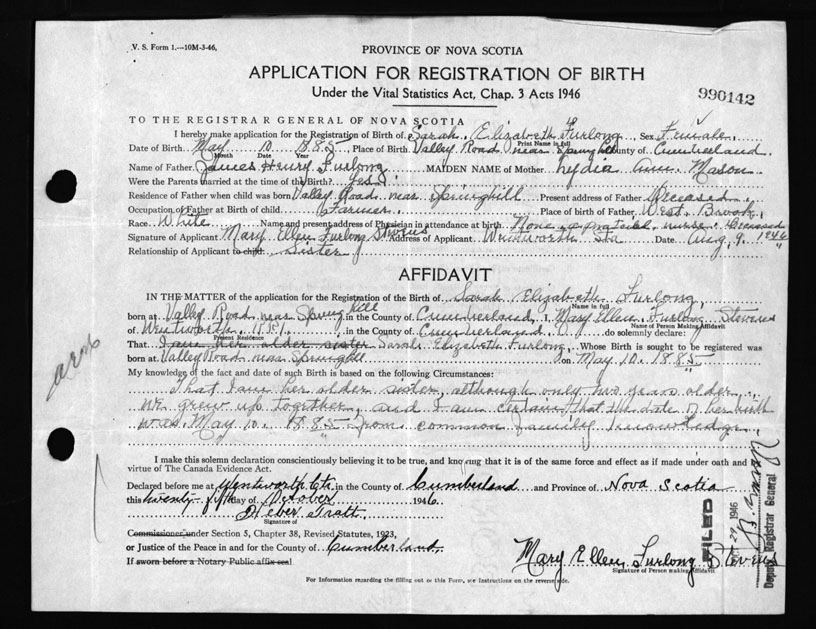 V. S. Form 1.—10M-3-46.
PROVINCE OF NOVA SCOTIA
APPLICATION FOR REGISTRATION OF BIRTH
Under the Vital Statistics Act, Chap. 3 Acts 1946
990142
TO THE REGISTRAR GENERAL OF NOVA SCOTIA
I hereby make application for the Registration of Birth of Sarah Elizabeth Furlong, Sex Female.
Print Name in full
Date of Birth May 10 1885, Place of Birth Valley Road near Springhill County of Cumberland.
Month Date Year
Name of Father James Henry Furlong MAIDEN NAME of Mother Lydia Ann Mason
Were the Parents married at the time of the Birth? Yes.
Residence of Father when child was born Valley Road near Springhill Present address of Father Deceased.
Occupation of Father at Birth of child Farmer. Place of birth of Father West Brook,
Race White Name and present address of Physician in attendance at birth None, a practical nurse. Deceased
Signature of Applicant Mary Ellen Furlong Stevens Address of Applicant Wentworth Sta Date Aug 9. 1946
Relationship of Applicant to child Sister "
AFFIDAVIT
IN THE MATTER of the application for the Registration of the Birth of Sarah Elizabeth Furlong,
Name in full
born at Valley Road near Springhill in the County of Cumberland, I, Mary Ellen Furlong Stevens
Name of Person Making Affidavit
of Wentworth, in the County of Cumberland do solemnly declare:
Present Residence
That I am her older sister Sarah Elizabeth Furlong, Whose Birth is sought to be registered was
born at Valley Road near Springhill on May 10. 1885
My knowledge of the fact and date of such Birth is based on the following Circumstances:
That I am her older sister, although only two years older,
we grew up together, and I am certain that the date of her birth
was May 10. 1885 from common family knowledge.
I make this solemn declaration conscientiously believing it to be true, and knowing that it is of the same force and effect as if made under oath and by
virtue of The Canada Evidence Act.
Declared before me at Wentworth Ctr. in the County of Cumberland and Province of Nova Scotia
this twenty fifth day of October 1946
Weber Tratt
Signature of
Commissioner under Section 5, Chapter 38, Revised Statutes, 1923,
or Justice of the Peace in and for the County of Cumberland
If sworn before a Notary Public affix seal
Mary Ellen Furlong Stevens
Signature of Person making Affidavit
For Information regarding the filling out of this Form, see Instructions on the reverse side.
FILED
OCT 29 1946
Deputy Registrar General